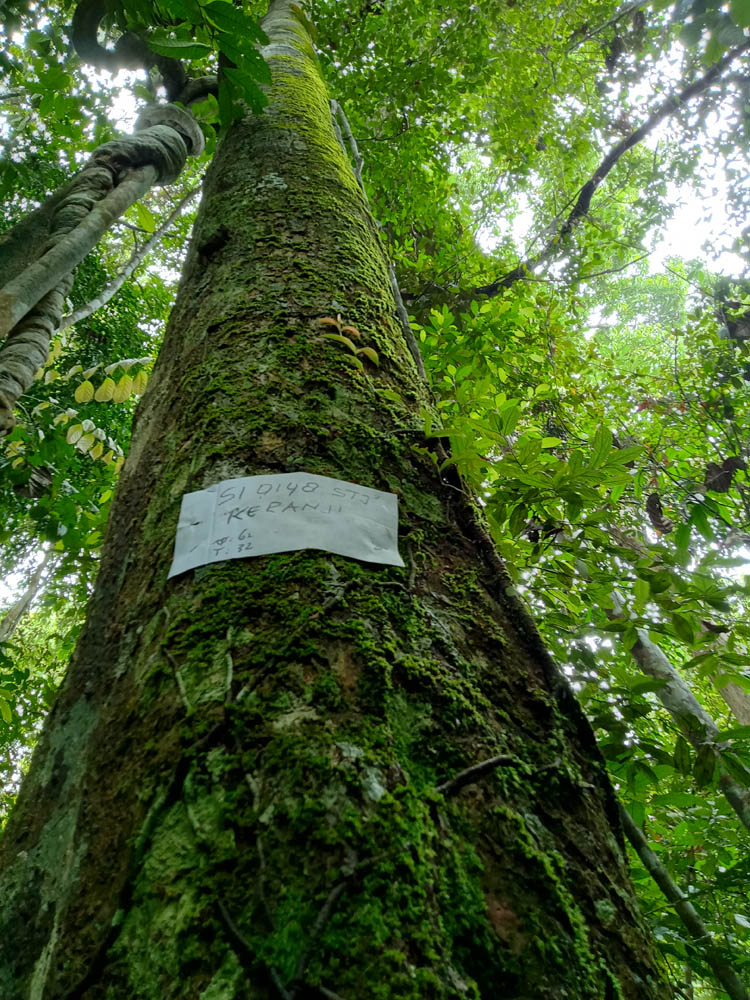 S1 0148 STJ
KERANJI
Ø: 62
T: 32